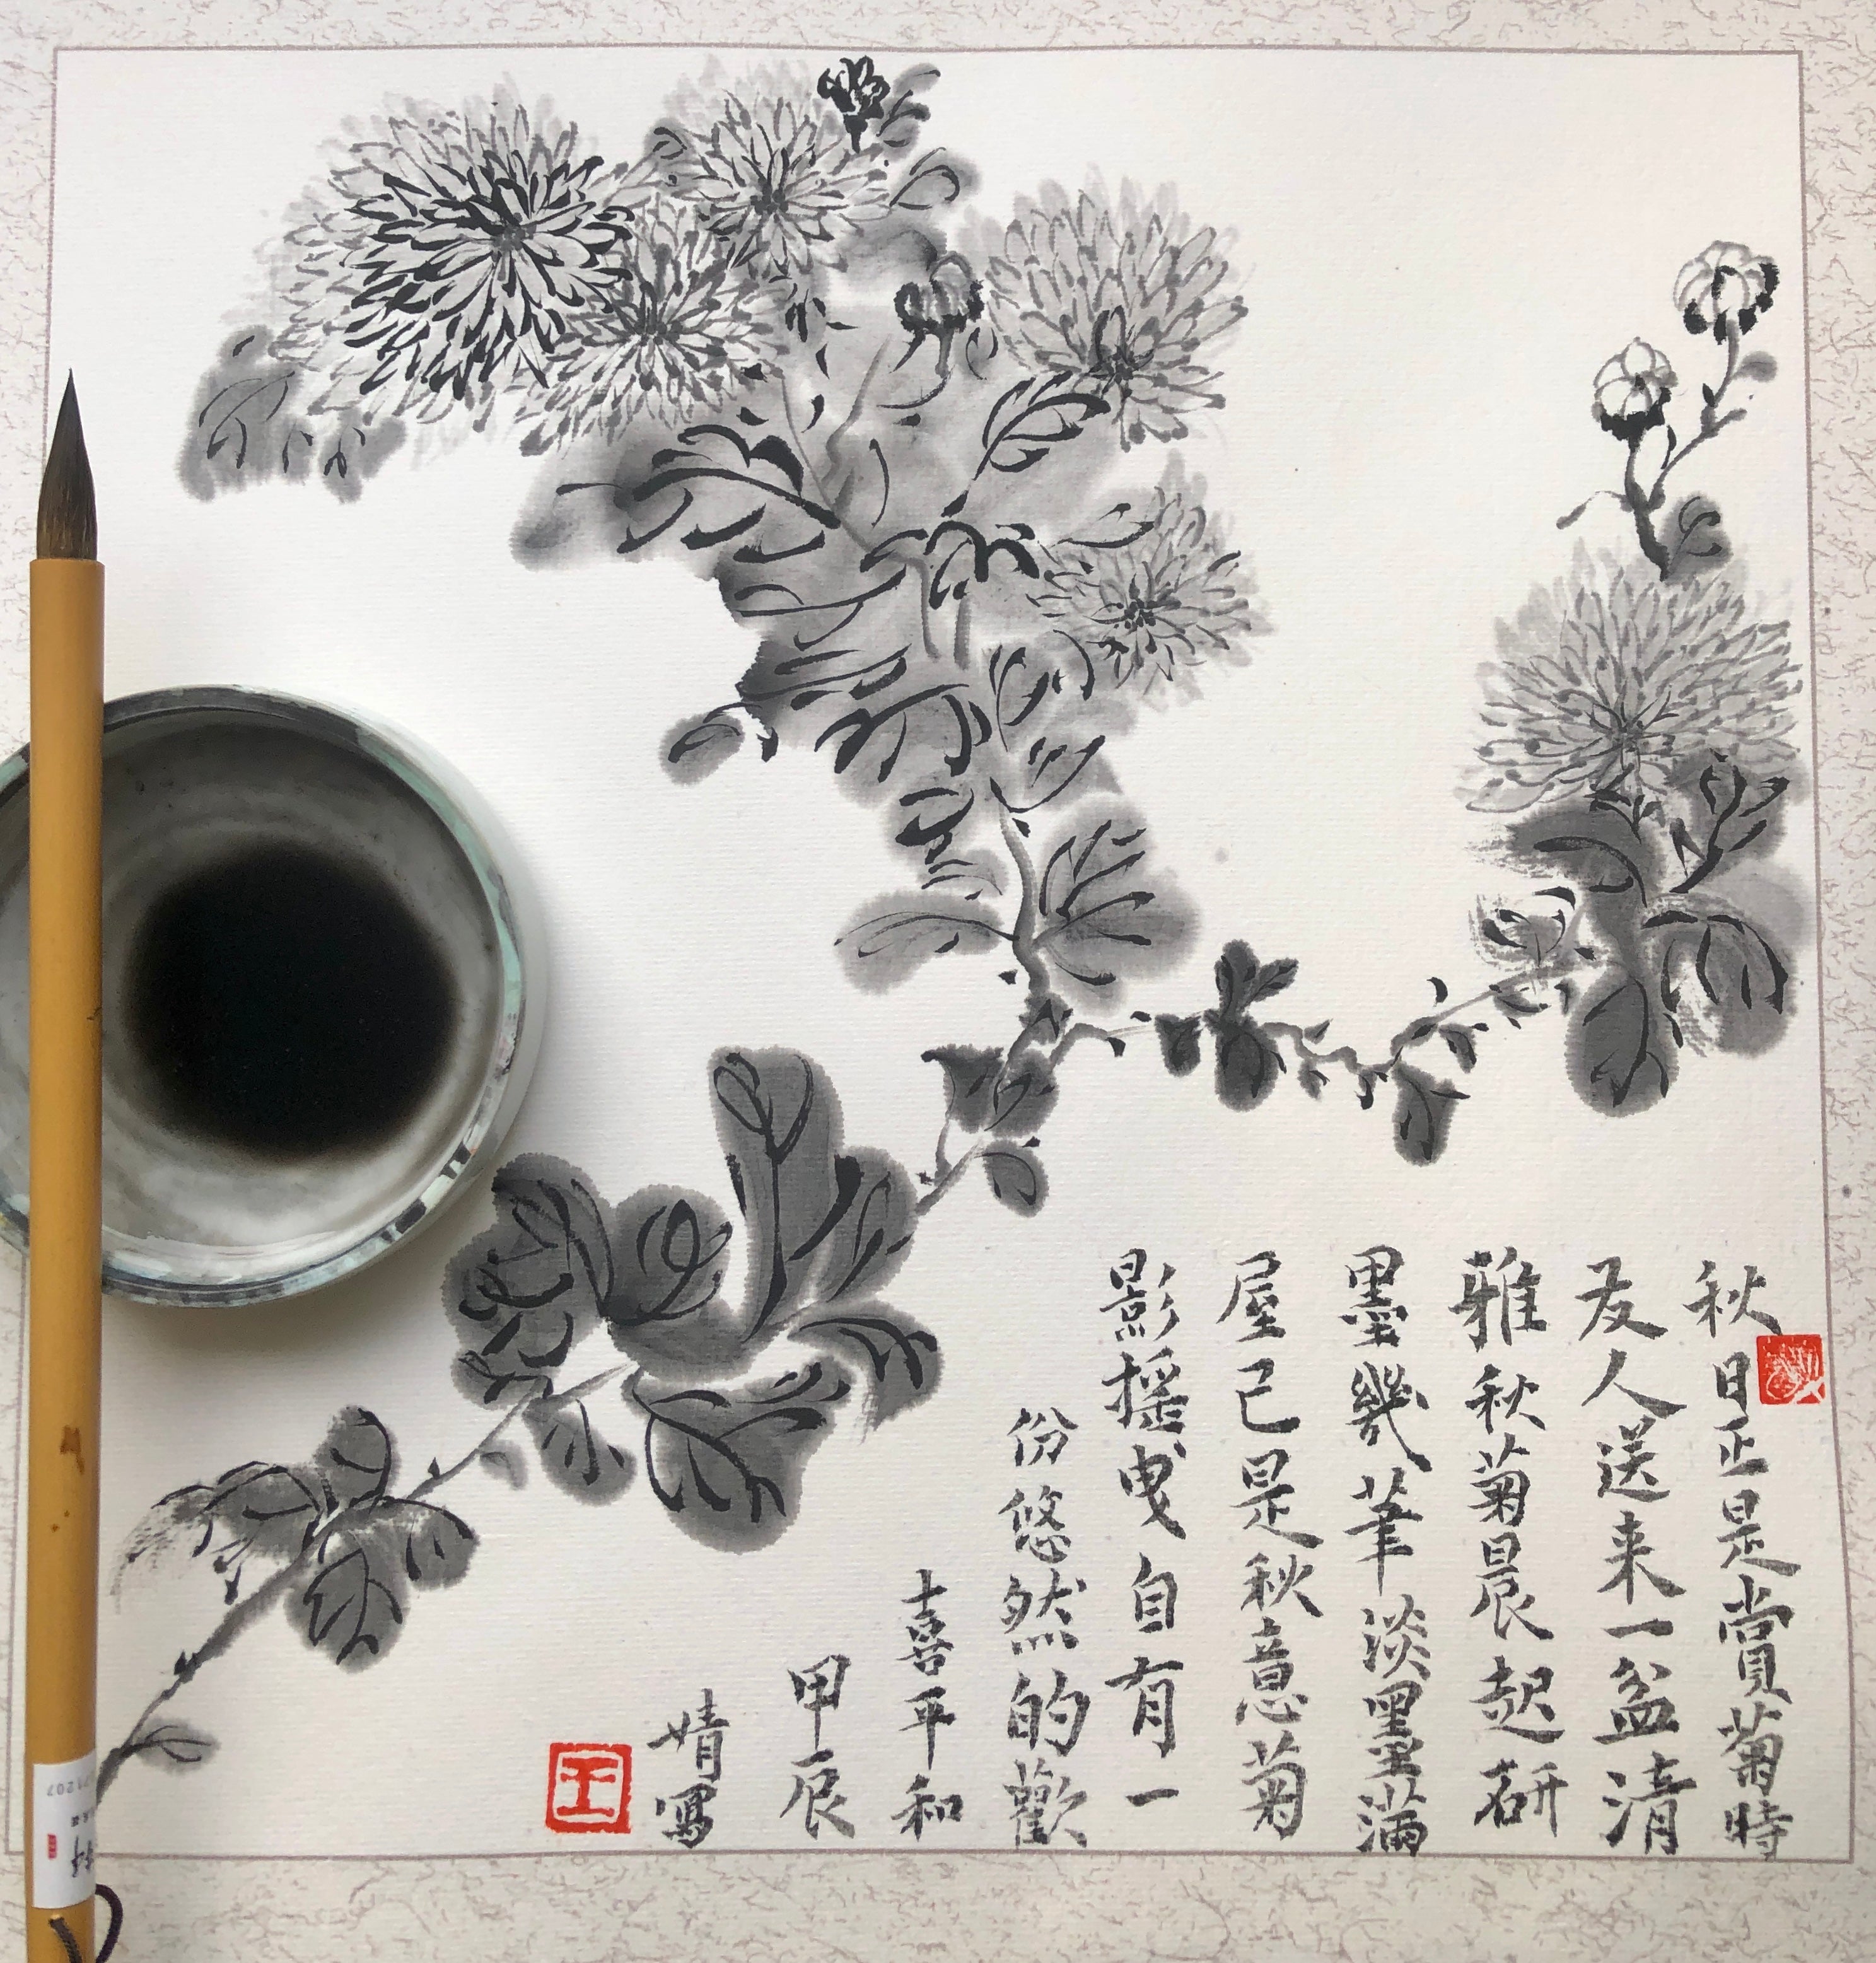 秋日正是賞菊時
友人送来一盆清
雅秋菊晨起研
墨幾筆淡墨滿
屋已是秋意菊
影摇曳自有一
份悠然的歡
喜平和
甲辰
婧寫
王